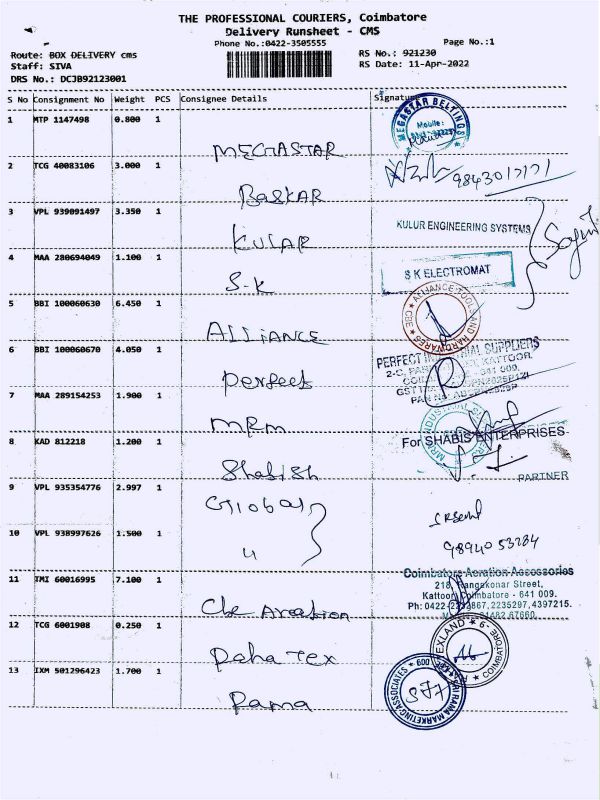 THE PROFESSIONAL COURIERS, Coimbatore
Delivery Runsheet - CMS
Phone No.:0422-3505555
Page No.:1
Route: BOX DELIVERY cms
Staff: SIVA
DRS No.: DCJB92123001
RS No.: 921230
RS Date: 11-Apr-2022
S No Consignment No Weight PCS Consignee Details Signature
1 MTP 1147498 0.800 1
MEGASTAR
MEGASTAR BELTINGS
Mobile:
2 TCG 40083106 3.000 1
BASKAR
3 VPL 939091497 3.350 1
KULAR
KULUR ENGINEERING SYSTEMS
4 MAA 280694049 1.100 1
S-K
S K ELECTROMAT
5 BBI 100060630 6.450 1
ALLIANCE
ALLIANCE TOOLS AND HARDWARES ★ CBE ★
6 BBI 100060670 4.050 1
perfect
PERFECT INDUSTRIAL SUPPLIERS
KATTOOR,
641 009.
7 MAA 289154253 1.900 1
MRM
8 KAD 812218 1.200 1
Shabish
For SHABIS ENTERPRISES.
PARTNER
9 VPL 935354776 2.997 1
Global
10 VPL 938997626 1.500 1
"
98940 53284
11 IMI 60016995 7.100 1
Cbe Areation
Coimbatore Aeration Accessories
Street,
Kattoor, Coimbatore - 641 009.
2235297, 4397215.
12 TCG 6001908 0.250 1
COIMBATORE
13 IXM 501296423 1.700 1
Rama
RAMA MARKETING ASSOCIATES